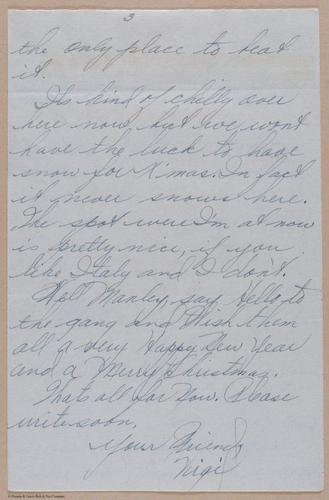 3
the only place to beat
it.
Its kind of chilly over
here now but we wont
have the luck to have
snow for X'mas. In fact
it never snows here.
The spot were I'm at now
is pretty nice, if you
like Italy and I don't.
Well Manley, say Hello to
the gang and Wish them
all a very Happy New Year
and a Merry Christmas.
Thats all for Now. Please
write soon.
Your Friend,